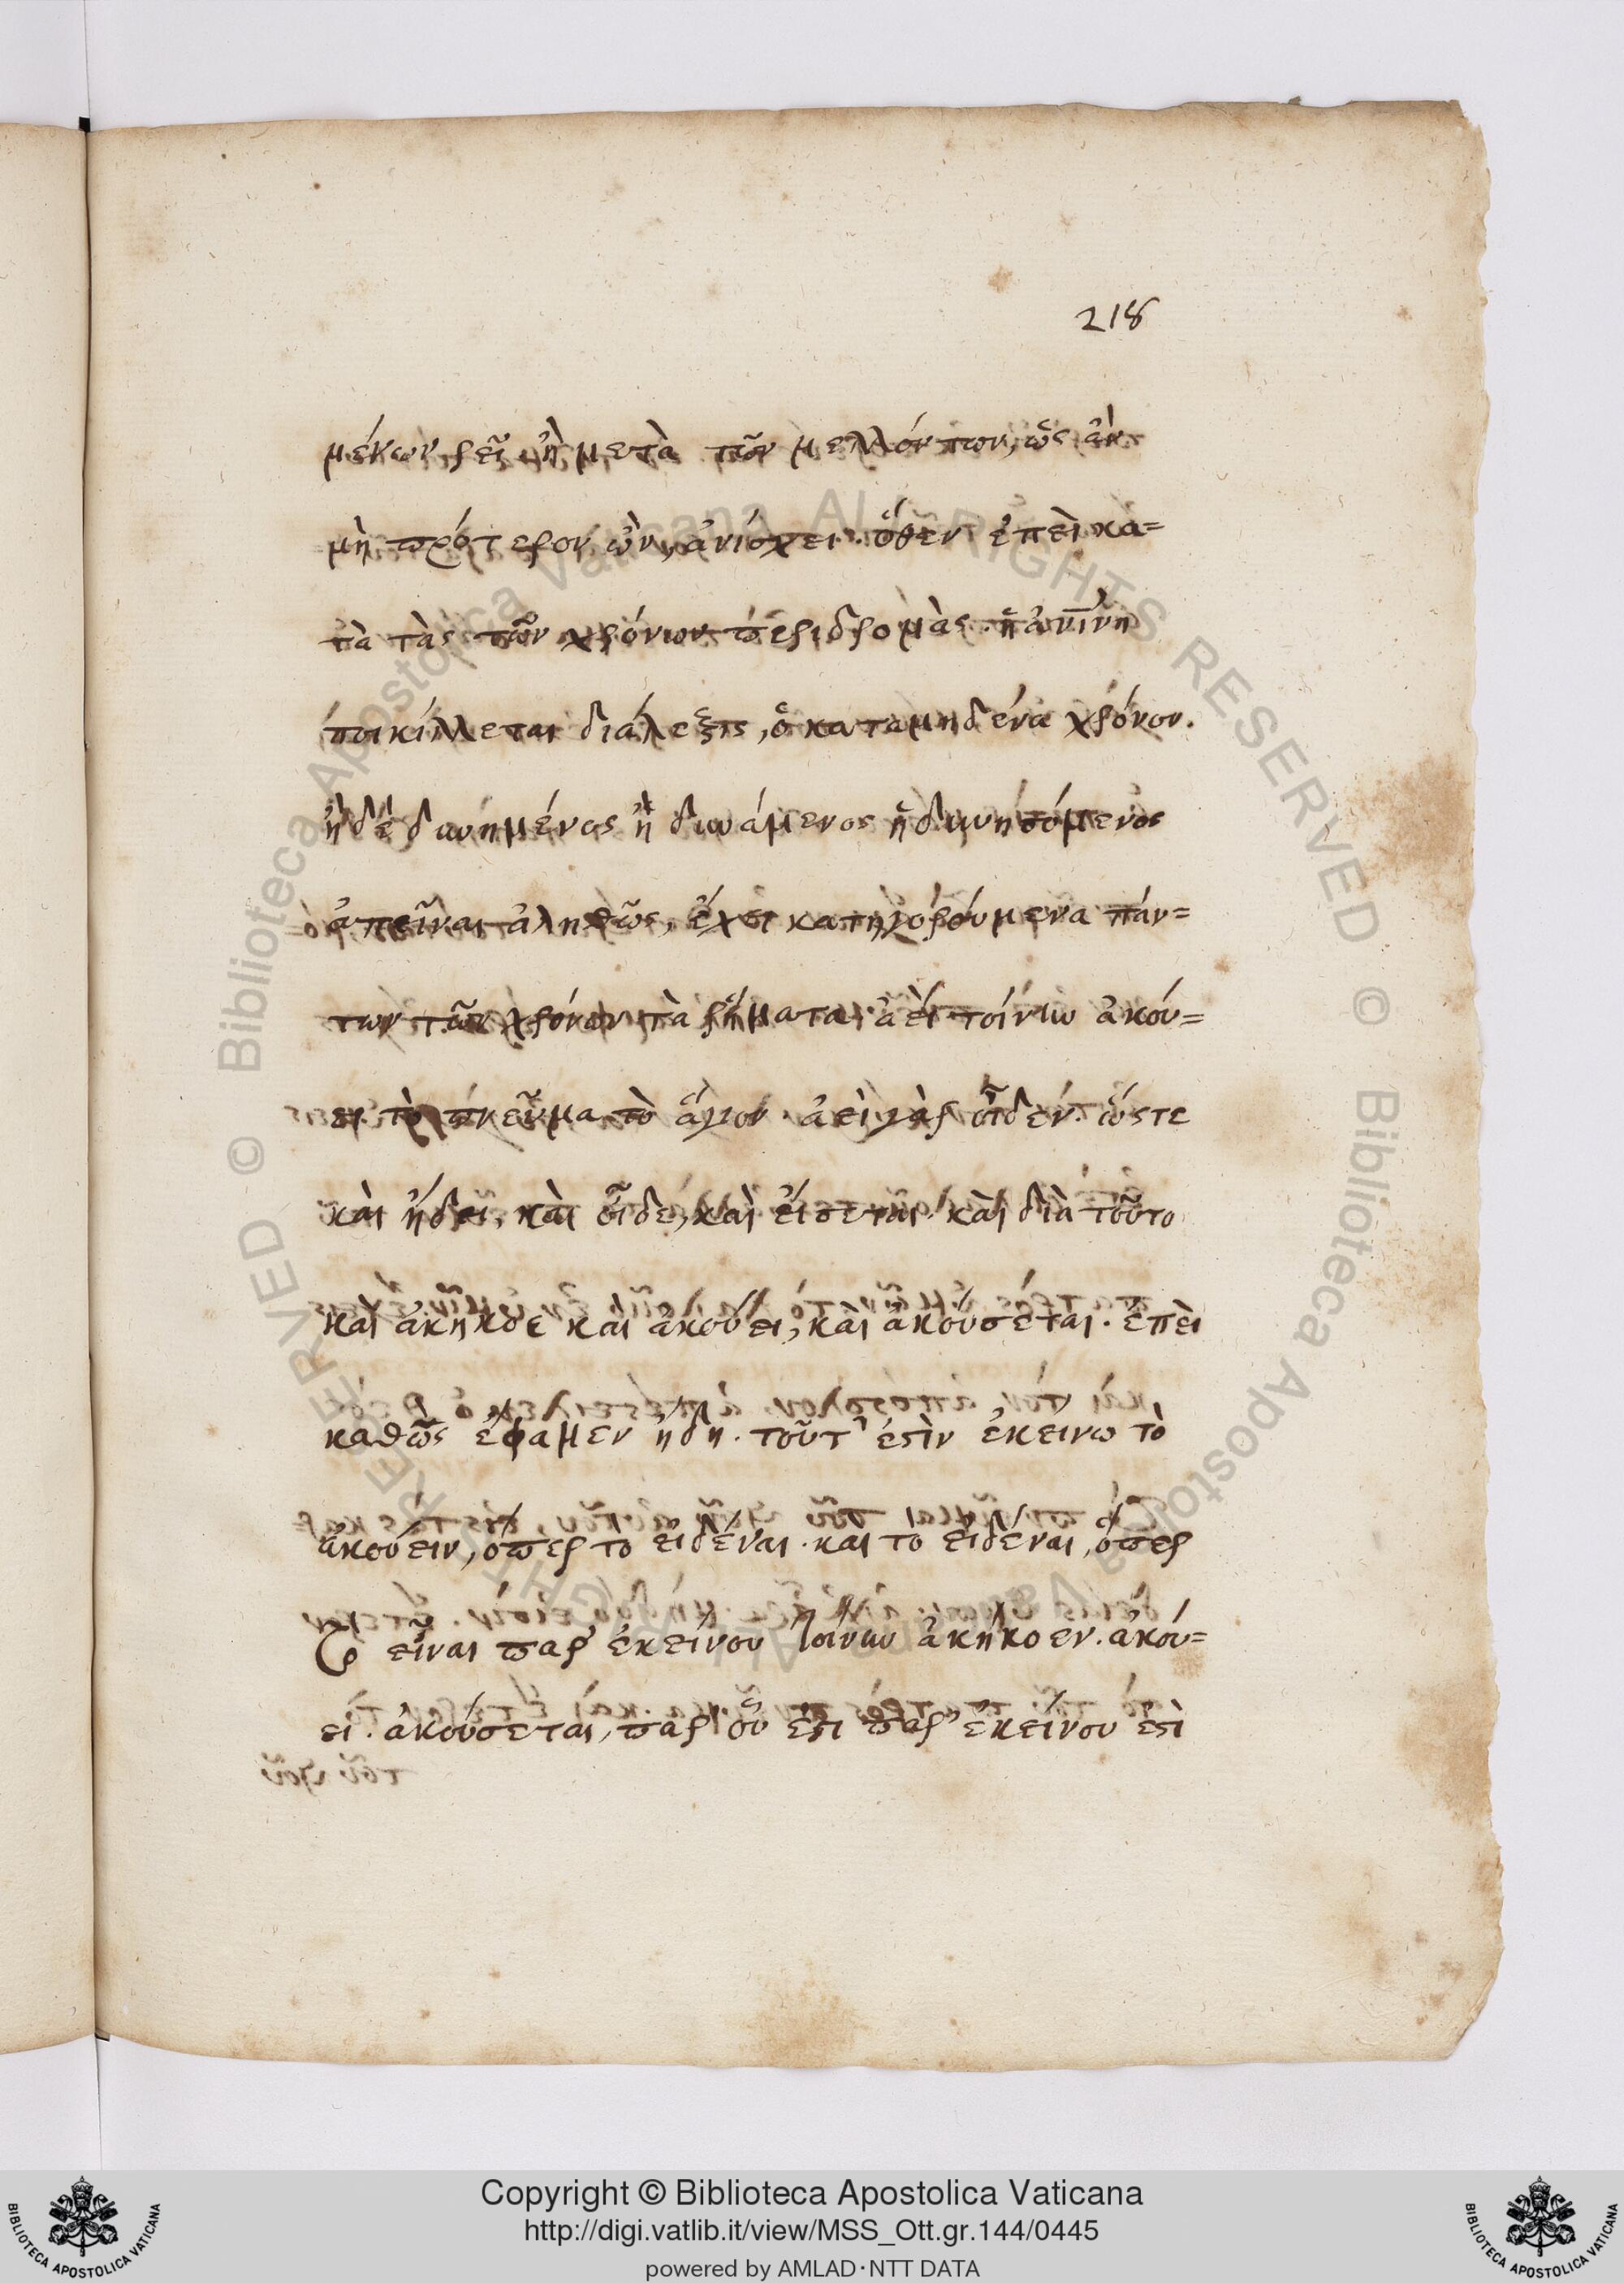 218
μένων ῥεῖ ἢ μετὰ τῶν μελλόντων, ὡς ἂν
μὴ πρότερον ὢν, ἀνίσχει. ὅθεν ἐπεὶ κα=
τὰ τὰς τῶν χρόνων περιδρομὰς ἡ
ποικίλλεται διάλεξις, ὁ κατα μηδένα χρόνον.
ἢ δεδυνημένος ἢ δυνάμενος ἢ δυνησόμενος
ἀπεῖναι ἀληθῶς, ἔχει κατηγορούμενα πάν=
των τῶν χρόνων τὰ ῥήματα. ἀεὶ τοίνυν ἀκού=
ει τὸ πνεῦμα τὸ ἅγιον. ἀεὶ γὰρ οἶδεν. ὥστε
καὶ ᾔδει, καὶ οἶδε, καὶ εἴσεται. καὶ διὰ τοῦτο
καὶ ἀκήκοε καὶ ἀκούει, καὶ ἀκούσεται. ἐπεὶ
καθὼς ἔφαμεν ἤδη. τοῦτ' ἐστὶν ἐκείνω τὸ
ἀκούειν, ὅπερ τὸ εἰδέναι. καὶ τὸ εἰδέναι, ὅπερ
τὸ εἶναι παρ' ἐκείνου τοίνυν ἀκήκοεν. ἀκού=
ει. ἀκούσεται, παρ' οὗ ἐστι παρ' ἐκείνου ἐστὶ
Copyright © Biblioteca Apostolica Vaticana
http://digi.vatlib.it/view/MSS_Ott.gr.144/0445
powered by AMLAD·NTT DATA
BIBLIOTECA APOSTOLICA VATICANA
BIBLIOTECA APOSTOLICA VATICANA
© Biblioteca Apostolica Vaticana ALL RIGHTS RESERVED
© Biblioteca Apostolica Vaticana ALL RIGHTS RESERVED